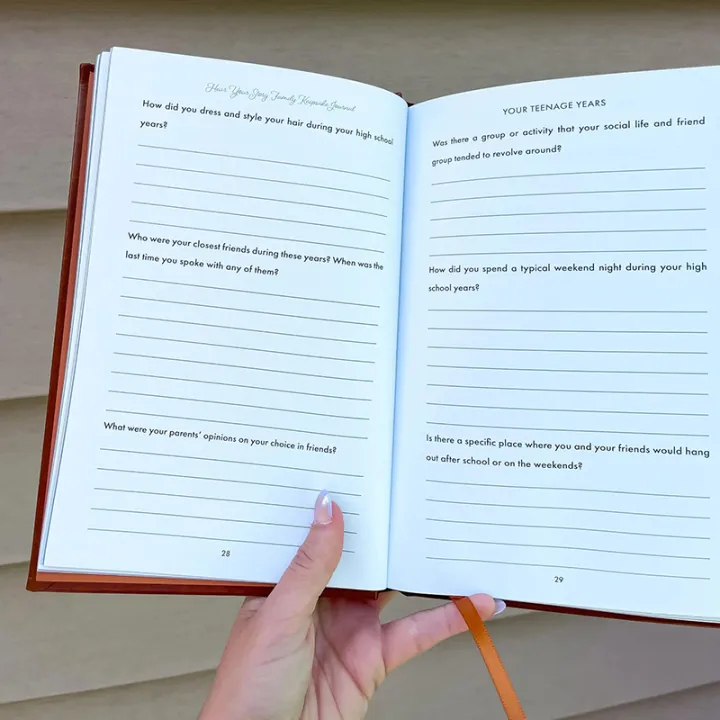 Hear Your Story Family Keepsake Journal
How did you dress and style your hair during your high school
years?
Who were your closest friends during these years? When was the
last time you spoke with any of them?
What were your parents' opinions on your choice in friends?
28
YOUR TEENAGE YEARS
Was there a group or activity that your social life and friend
group tended to revolve around?
How did you spend a typical weekend night during your high
school years?
Is there a specific place where you and your friends would hang
out after school or on the weekends?
29